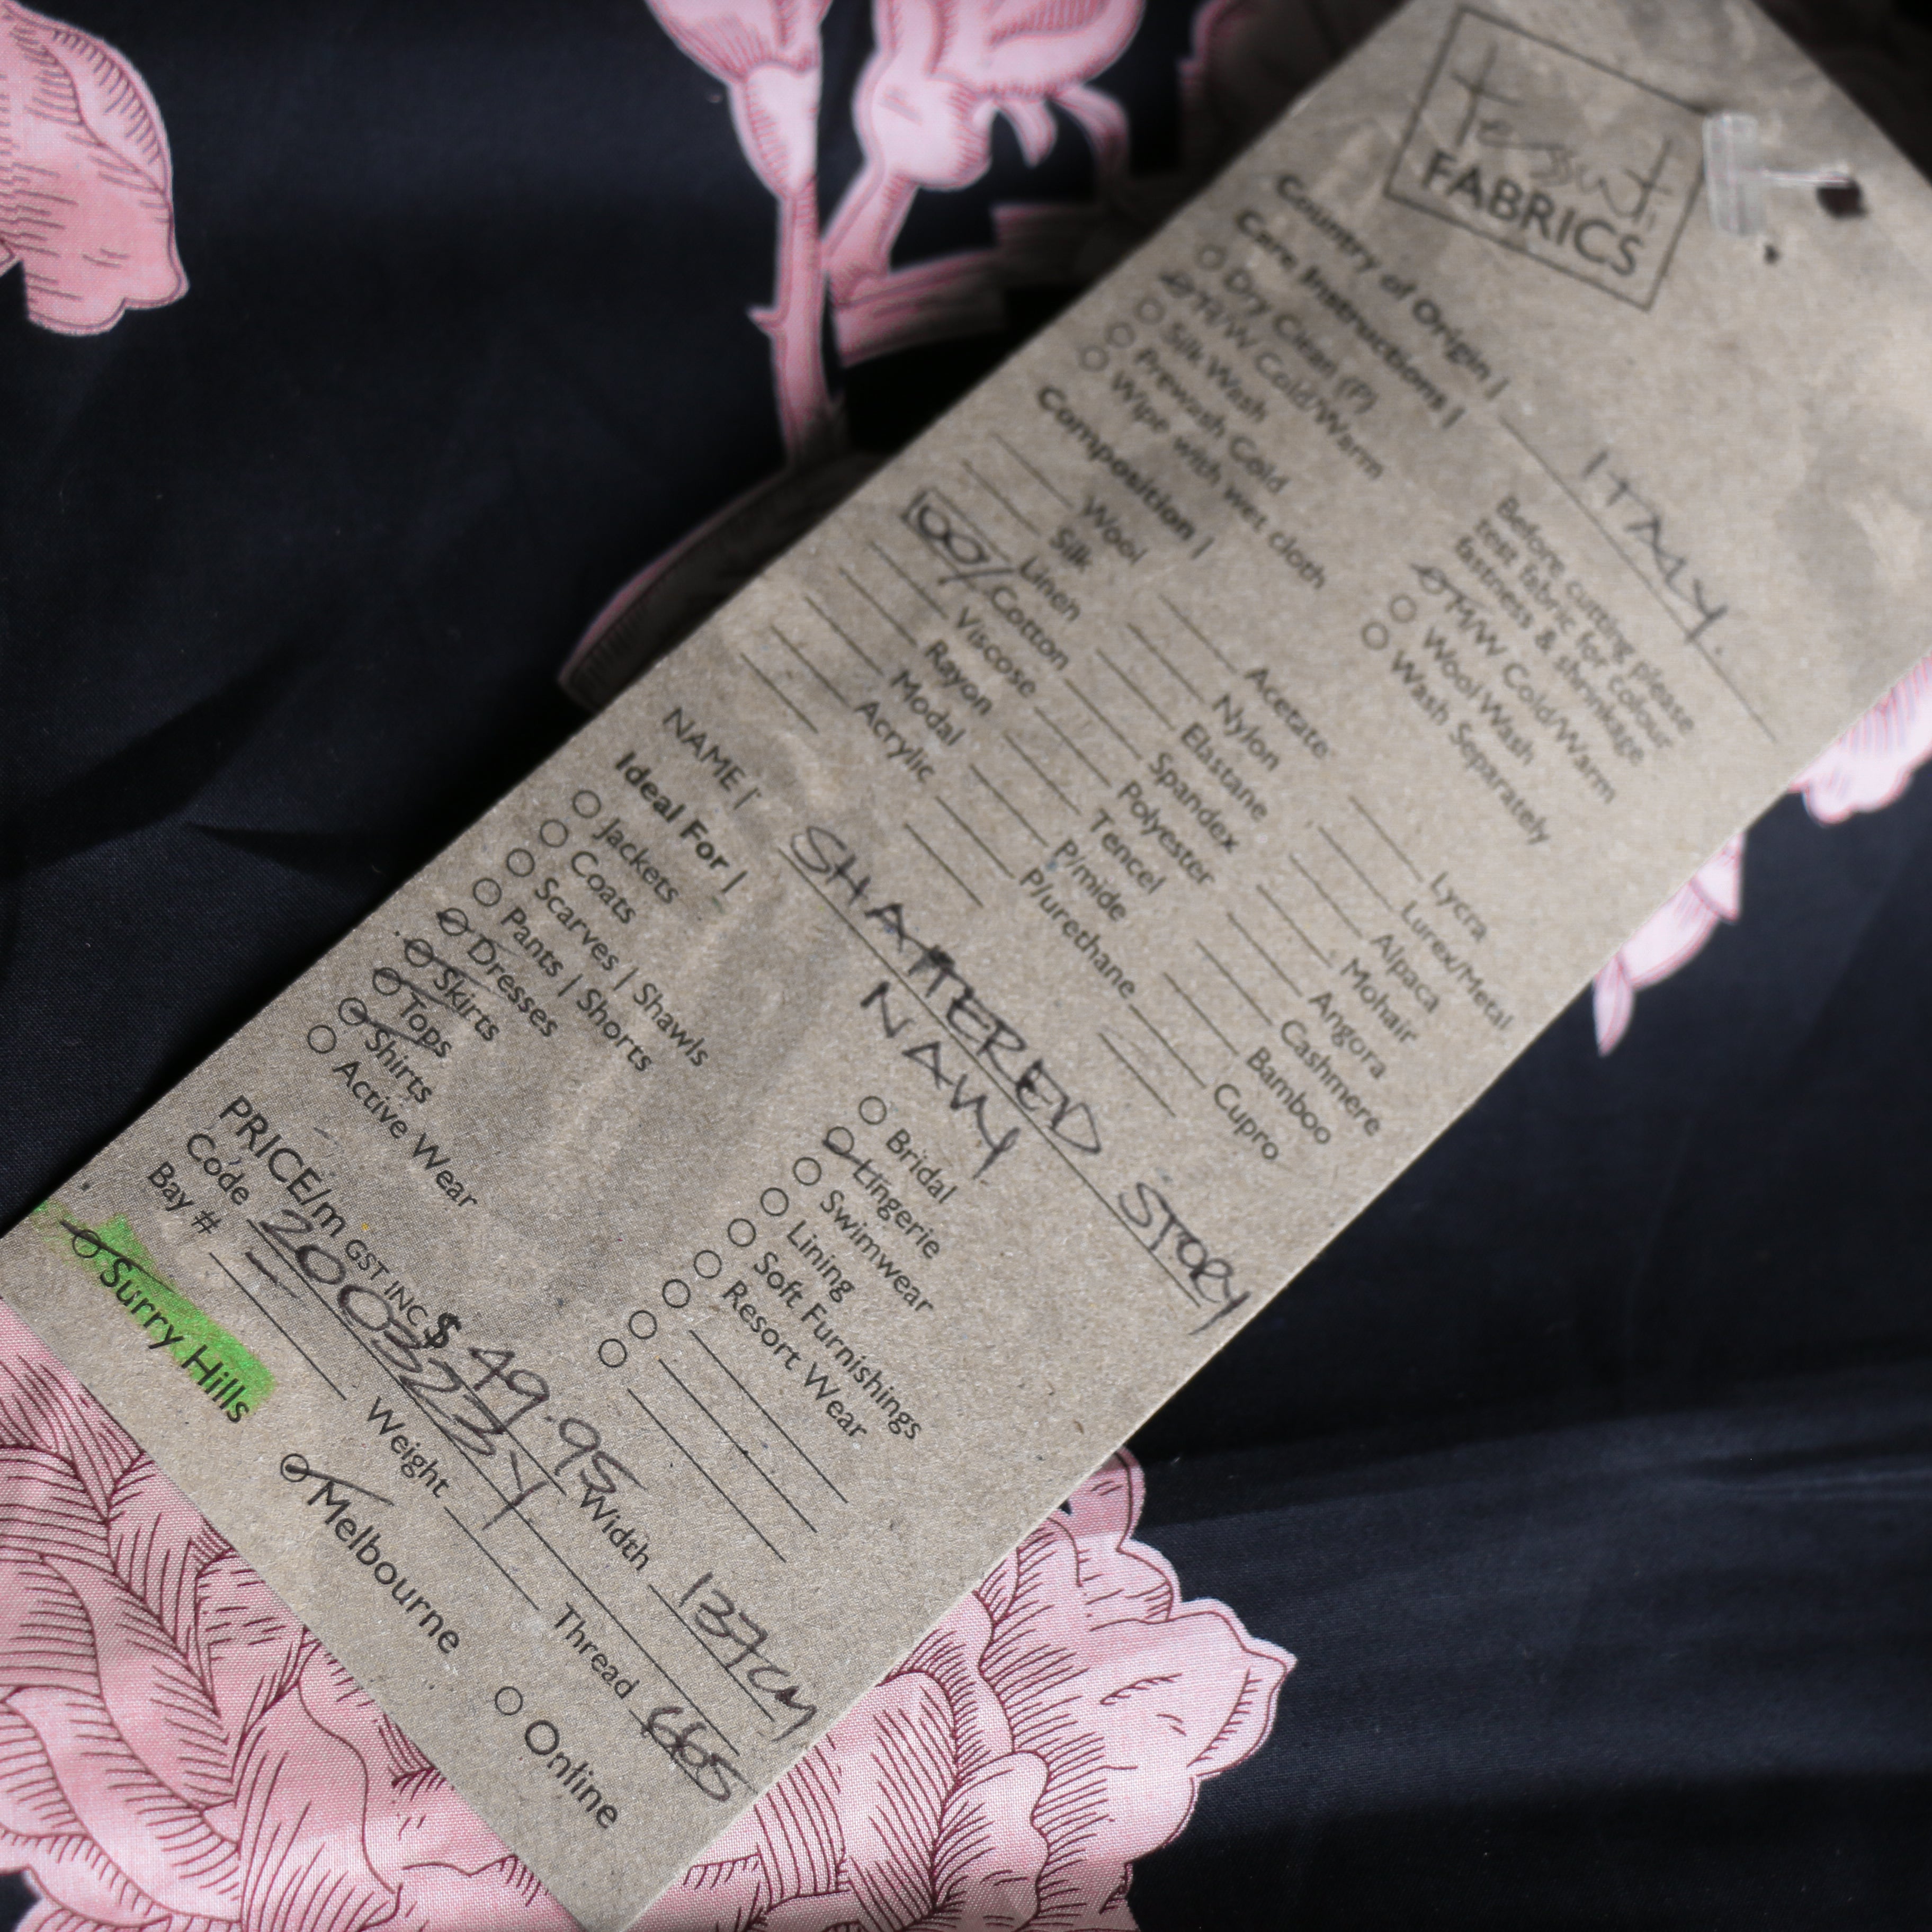 Tessuti
FABRICS
Country of Origin | ITALY
Care Instructions |
Before cutting please
test fabric for colour
fastness & shrinkage
Dry Clean (P)
H/W Cold/Warm
Silk Wash
Prewash Cold
Wipe with wet cloth
M/W Cold/Warm
Wool Wash
Wash Separately
Composition |
Wool
Silk
Linen
100% Cotton
Viscose
Rayon
Modal
Acrylic
Acetate
Nylon
Elastane
Spandex
Polyester
Tencel
P/mide
P/urethane
Lycra
Lurex/Metal
Alpaca
Mohair
Angora
Cashmere
Bamboo
Cupro
NAME | SHATTERED STORY
NAVY
Ideal For |
Jackets
Coats
Scarves | Shawls
Pants | Shorts
Dresses
Skirts
Tops
Shirts
Active Wear
Bridal
Lingerie
Swimwear
Lining
Soft Furnishings
Resort Wear
PRICE/m GST INC $ 49.95 Width 137cm
Code Thread 6605
Bay # Weight
Surry Hills Melbourne Online